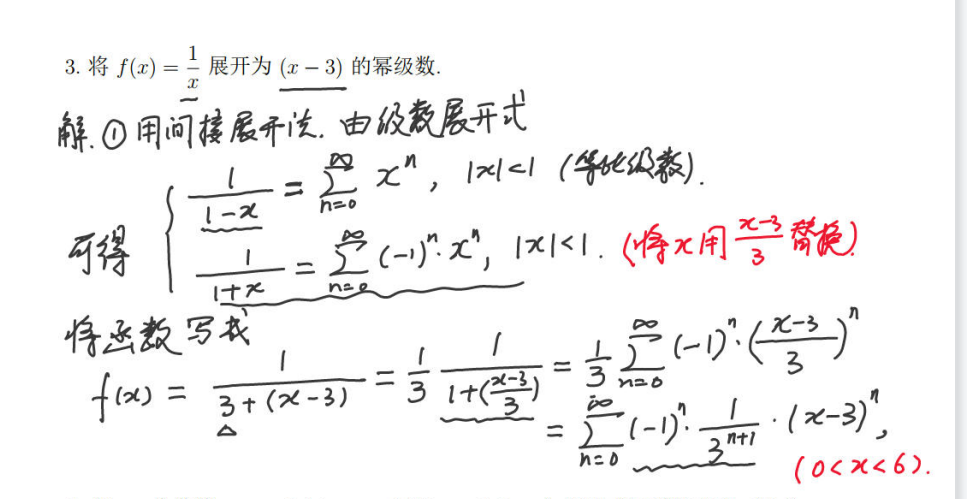 3. 将 f(x) = 1/x 展开为 (x − 3) 的幂级数.
解.①用间接展开法. 由级数展开式
1/(1-x) = ∑_{n=0}^{∞} x^n, |x|<1 (等比级数).
可得
1/(1+x) = ∑_{n=0}^{∞} (-1)^n · x^n, |x|<1. (将x用 (x-3)/3 替换)
将函数写成
f(x) = 1/(3+(x-3)) = 1/3 · 1/(1+((x-3)/3)) = 1/3 ∑_{n=0}^{∞} (-1)^n · ((x-3)/3)^n
= ∑_{n=0}^{∞} (-1)^n · 1/3^{n+1} · (x-3)^n,
(0<x<6).